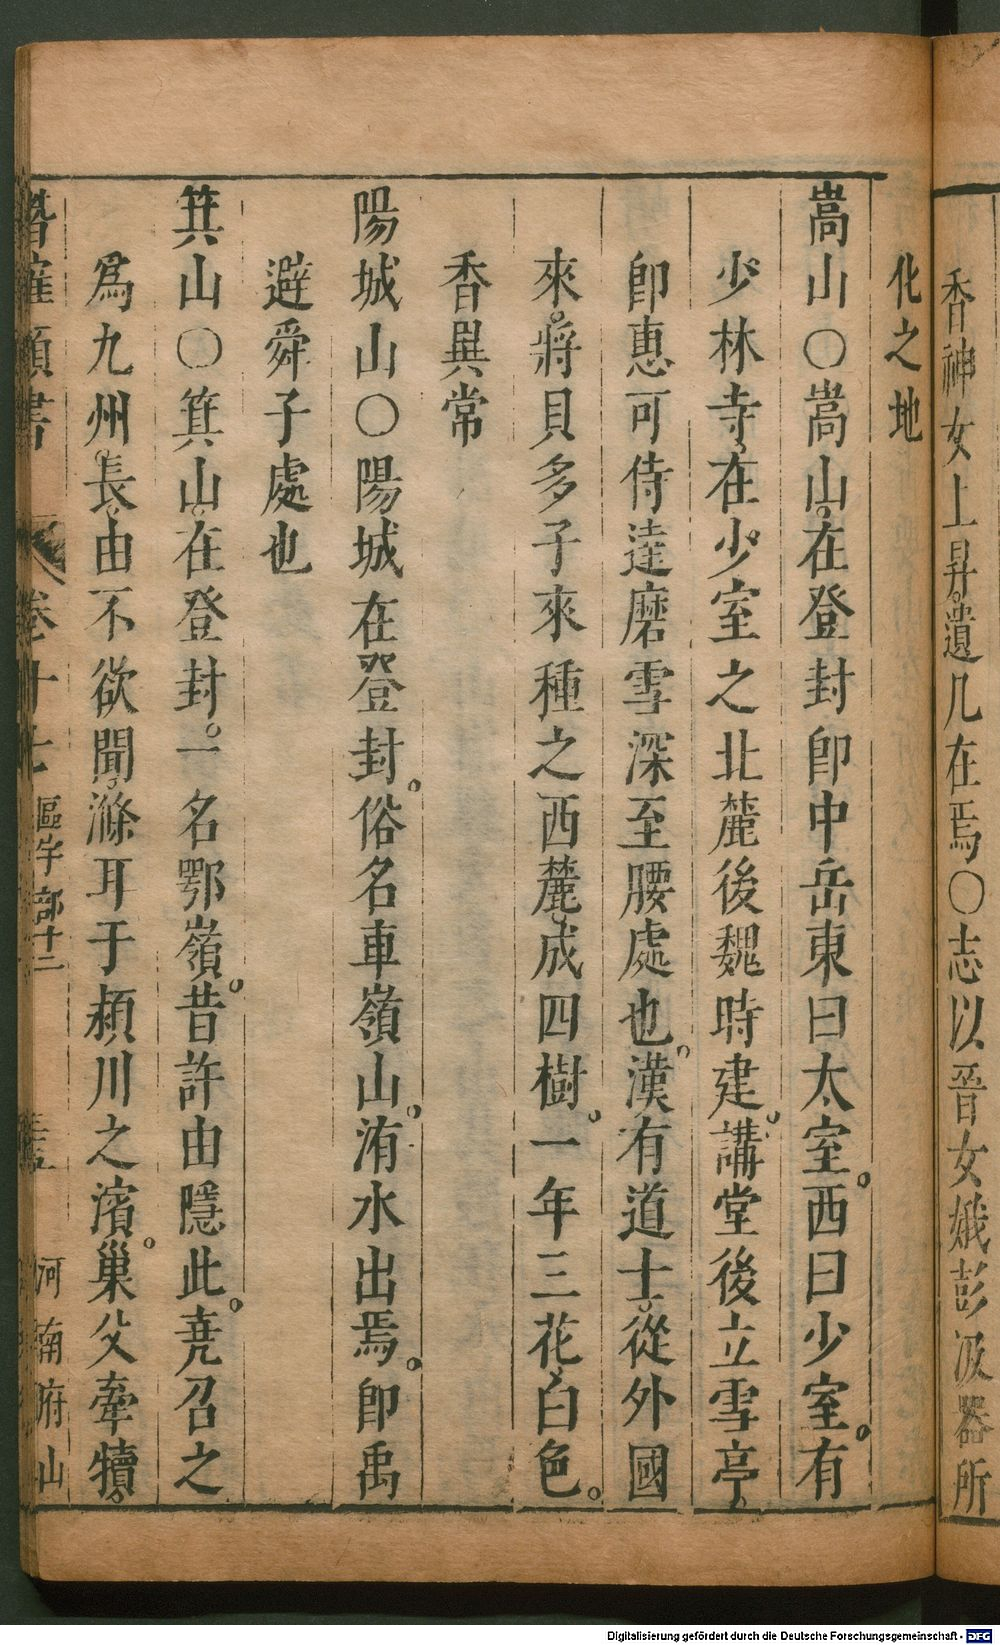 香神女上昇遺几在焉〇志以晉女娥彭汲器所
化之地
嵩山〇嵩山在登封卽中岳東曰太室。西曰少室。有
少林寺、在少室之北麓後魏時建。講堂後立雪亭、
卽惠可侍達磨雪深至腰處也。漢有道士、從外國
來、將貝多子來種之西麓、成四樹。一年三花、白色。
香異常
陽城山〇陽城在登封。俗名車嶺山。洧水出焉。卽禹
避舜子處也
箕山〇箕山、在登封。一名鄂嶺。昔許由隱此。堯召之
爲九州長、由不欲聞、滌耳于潁川之濱。巢父牽犢。
潛確類書 卷十七 區宇部十二 河南府山
Digitalisierung gefördert durch die Deutsche Forschungsgemeinschaft - DFG